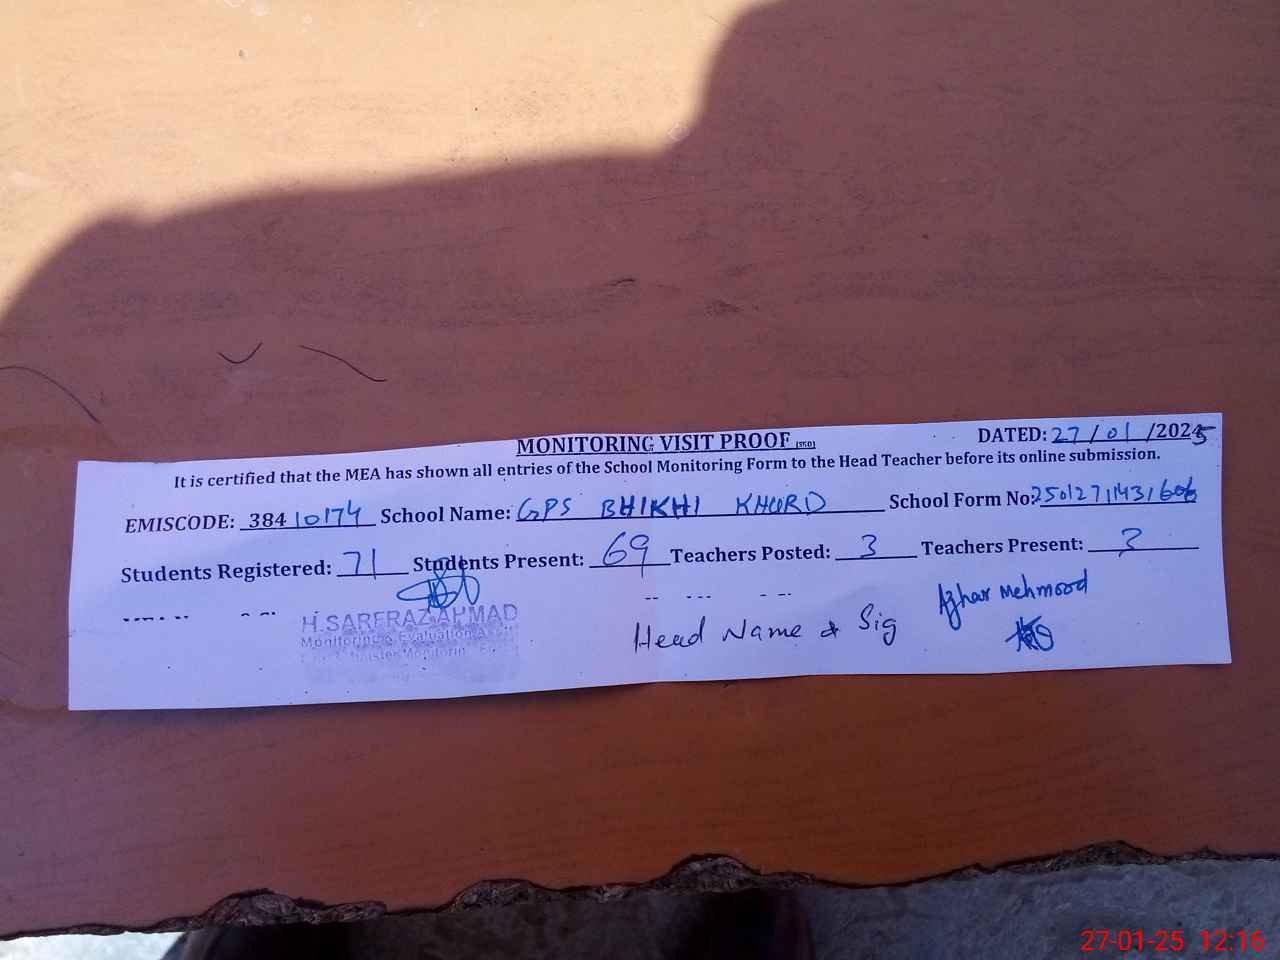 MONITORING VISIT PROOF
DATED: 27/01/2025
It is certified that the MEA has shown all entries of the School Monitoring Form to the Head Teacher before its online submission.
EMISCODE: 38410174 School Name: GPS BHIKHI KHURD School Form No:
Students Registered: 71 Students Present: 69 Teachers Posted: 3 Teachers Present: 3
H.SARFRAZ AHMAD
Monitoring & Evaluation
Head Name & Sig Azhar Mehmood
27-01-25 12:16